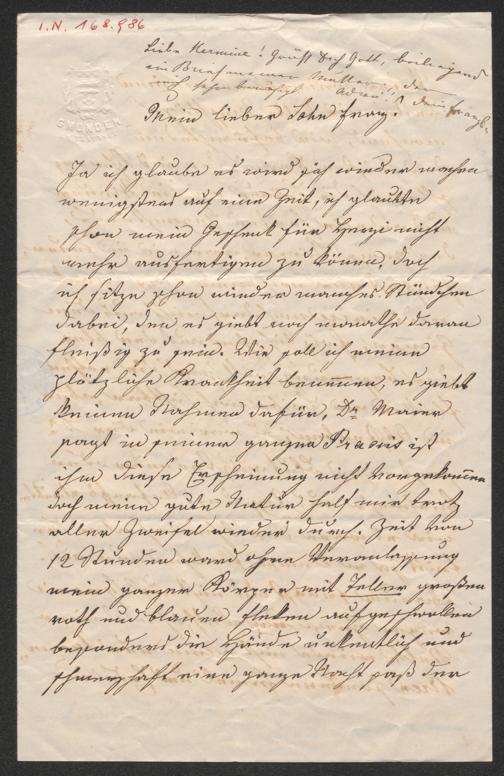 I.N. 168.986
Liebe Hermine! Grüß Dich Gott, beiliegend
ein Brief meiner Mutter, der
mich sehr Adieu! Dein Franzl.
GMUNDEN
Mein lieber Sohn Franz!
Ja ich glaube es wird sich wieder machen
wenigstens auf eine Zeit, ich glaubte
schon mein Geschenk für nicht
mehr ausfertigen zu können, doch
ich sitze schon wieder manches Stündchen
dabei, den es giebt noch monathe daran
fleißig zu sein. Wie soll ich meine
plötzliche Krankheit benennen, es giebt
keinen Nahmen dafür, Dr. Maier
sagt in seiner ganzen Praxis ist
ihm diese Erscheinung nicht vorgekommen
doch meine gute Natur half mir trotz
aller Zweifel wieder durch. Zeit von
12 Stunden ward ohne Veranlassung
mein ganzer Körper mit Teller großen
roth und blauen Fleken aufgeschwollen
besonders die Hände unkentlich und
schmerzhaft eine ganze Nacht saß der